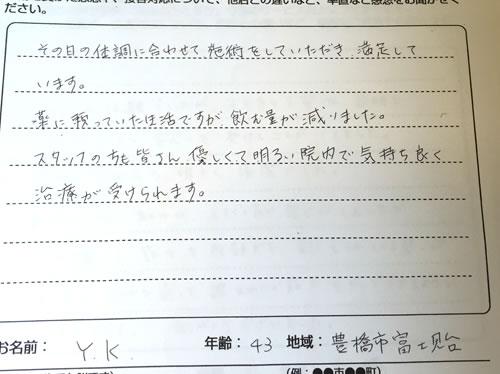 ださい。
その日の体調に合わせて施術をしていただき 満足して
います。
薬に頼っていた生活ですが飲む量が減りました。
スタッフの方も皆さん優しくて明るい院内で気持ち良く
治療が受けられます。
お名前： Y.K. 年齢： 43 地域： 豊橋市富士見台
(例：●●市●●町)